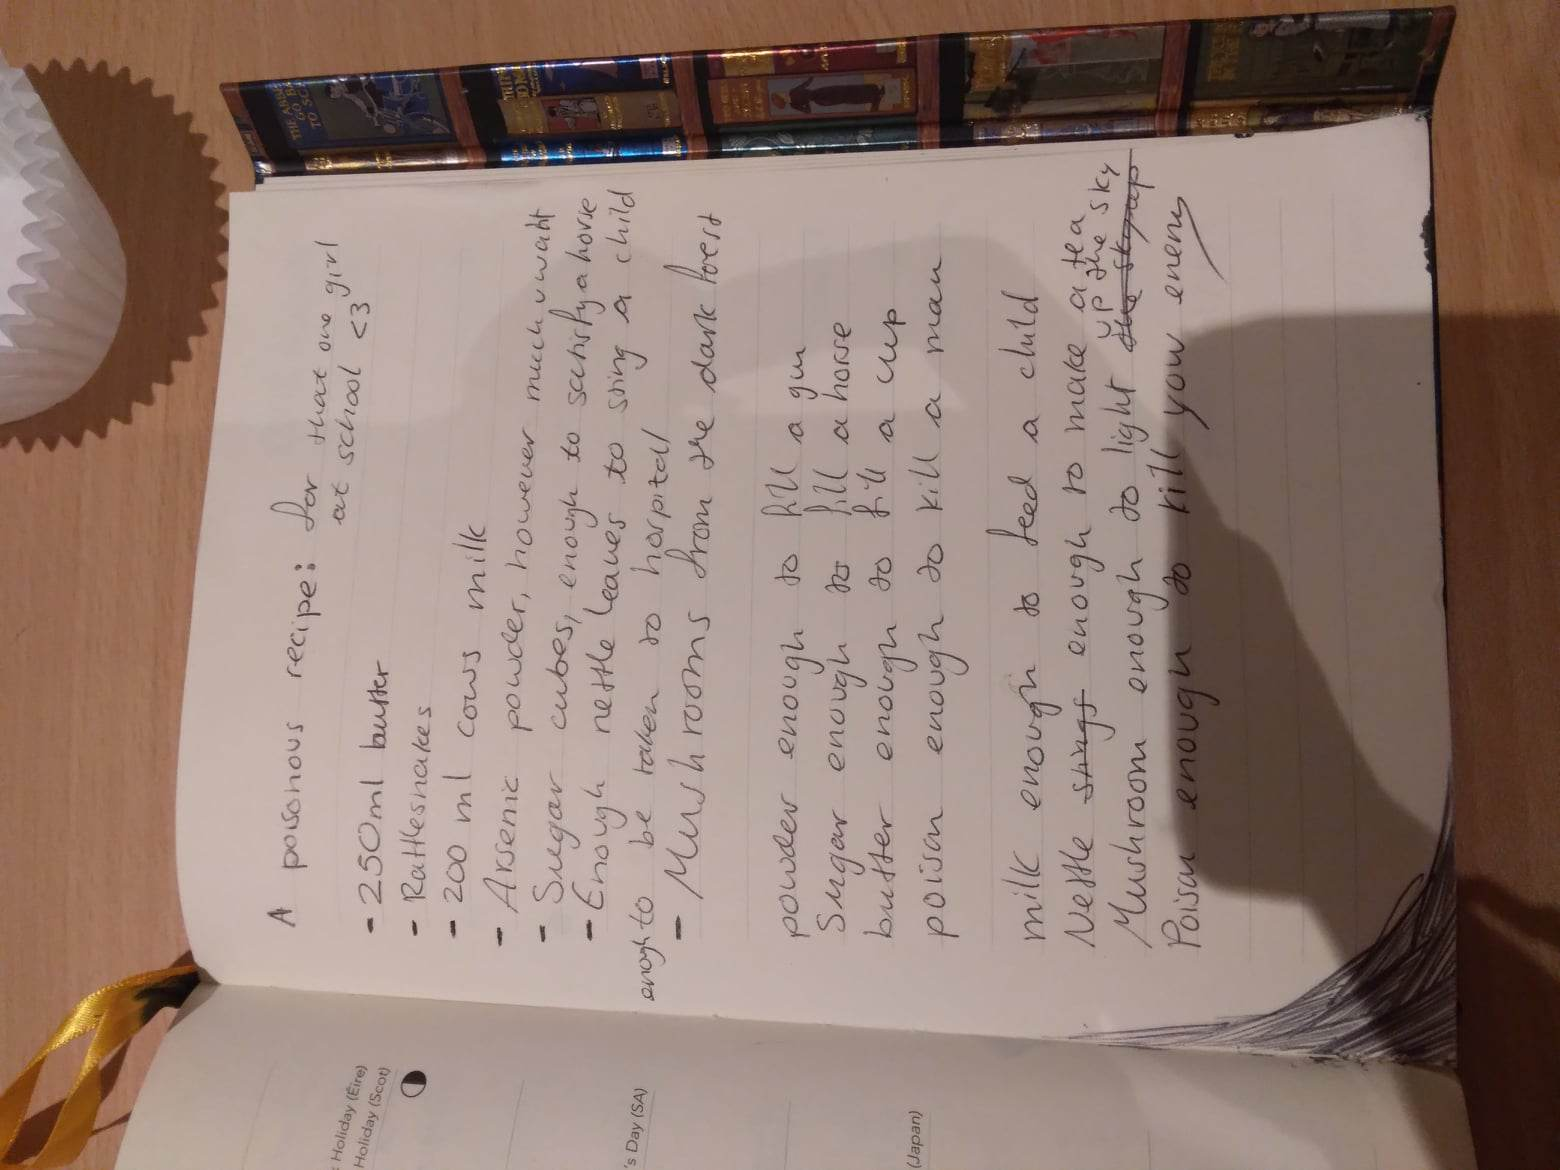 A poisonous recipe: for that one girl
at school <3
- 250ml butter
- Rattlesnakes
- 200 ml cows milk
- Arsenic powder, however much u waht
- Sugar cubes, enough to satisfy a horse
- Enough nettle leaves to sting a child
enogh to be taken to hospital
- Mushrooms from the dark forest
powder enough to fill a gun
Sugar enough to fill a horse
butter enough to fill a cup
poison enough to kill a man
milk enough to feed a child
Nettle stings enough to make a tea
Mushroom enough to light up the sky
the skyup
Poison enough to kill your enemy
: Holiday (Éire)
Holiday (Scot)
's Day (SA)
(Japan)
THE
TO